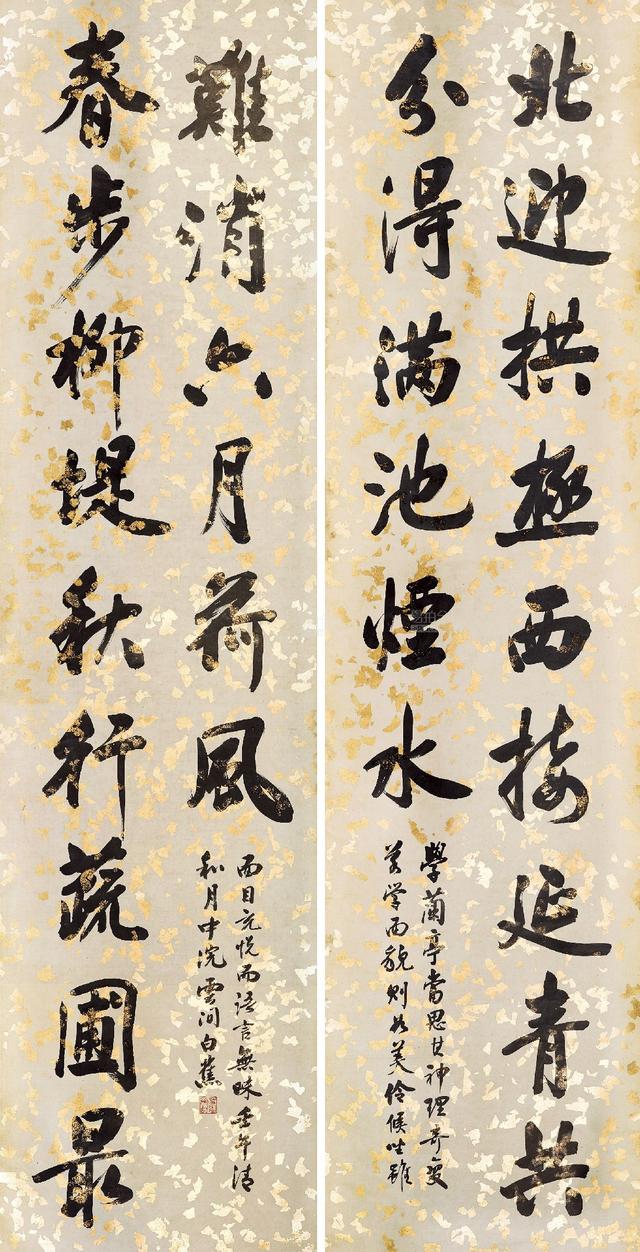 北迎拱極西接延青共
分得滿池煙水
學蘭亭當思其神理奇變
若學面貌則如美伶候坐雖
春步柳堤秋行蔬圃最
難消六月荷風
面目充悅而語言無味壬午清
和月中浣雲間白蕉